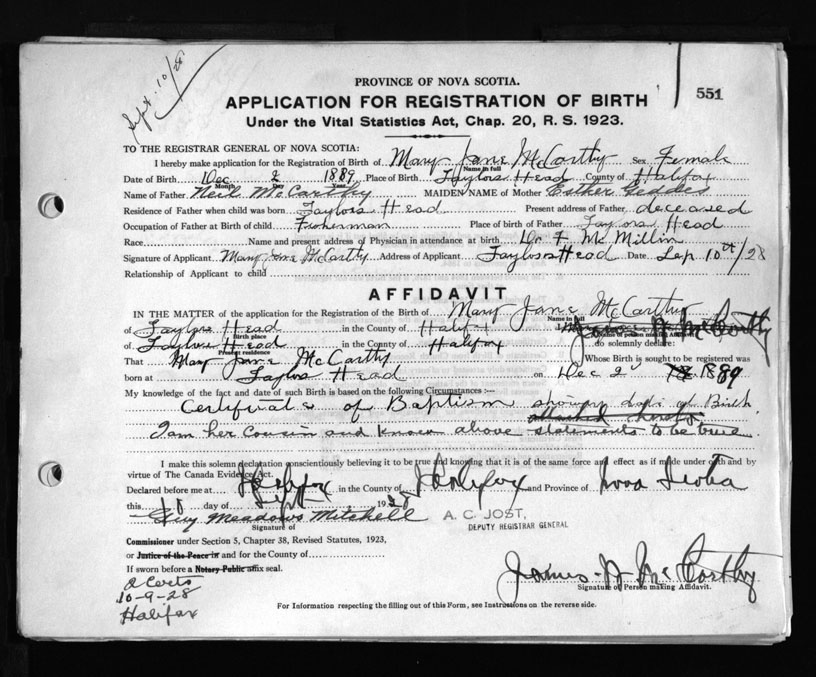 Sept. 10/28
PROVINCE OF NOVA SCOTIA.
551
APPLICATION FOR REGISTRATION OF BIRTH
Under the Vital Statistics Act, Chap. 20, R. S. 1923.
TO THE REGISTRAR GENERAL OF NOVA SCOTIA:
I hereby make application for the Registration of Birth of Mary Jane McCarthy Sex Female
Name in full
Date of Birth Dec 2 1889 Place of Birth Taylors Head County of Halifax
Month Day Year
Name of Father Neil McCarthy MAIDEN NAME of Mother Esther Geddes
Residence of Father when child was born Taylors Head Present address of Father deceased
Occupation of Father at Birth of child Fisherman Place of birth of Father Taylors Head
Race Name and present address of Physician in attendance at birth Dr F McMillin
Signature of Applicant Mary Jane McCarthy Address of Applicant Taylors Head Date Sep 10th/28
Relationship of Applicant to child
AFFIDAVIT
IN THE MATTER of the application for the Registration of the Birth of Mary Jane McCarthy
Name in full
of Taylors Head in the County of Halifax James H McCarthy
Birth place
of Taylors Head in the County of Halifax do solemnly declare:
Present residence
That Mary Jane McCarthy Whose Birth is sought to be registered was
born at Taylors Head on Dec 2 18 1889
My knowledge of the fact and date of such Birth is based on the following Circumstances :—
Certificate of Baptism showing date of Birth
attached hereto
I am her cousin and know above statements to be true
I make this solemn declaration conscientiously believing it to be true and knowing that it is of the same force and effect as if made under oath and by
virtue of The Canada Evidence Act.
Declared before me at Halifax in the County of Halifax and Province of Nova Scotia
this 10 day of Sept 1928
Guy Meadows Mitchell
A. C. JOST,
Signature of
DEPUTY REGISTRAR GENERAL
Commissioner under Section 5, Chapter 38, Revised Statutes, 1923,
or Justice of the Peace in and for the County of
If sworn before a Notary Public affix seal.
James H McCarthy
Signature of Person making Affidavit.
2 Certs
10-9-28
Halifax
For Information respecting the filling out of this Form, see Instructions on the reverse side.